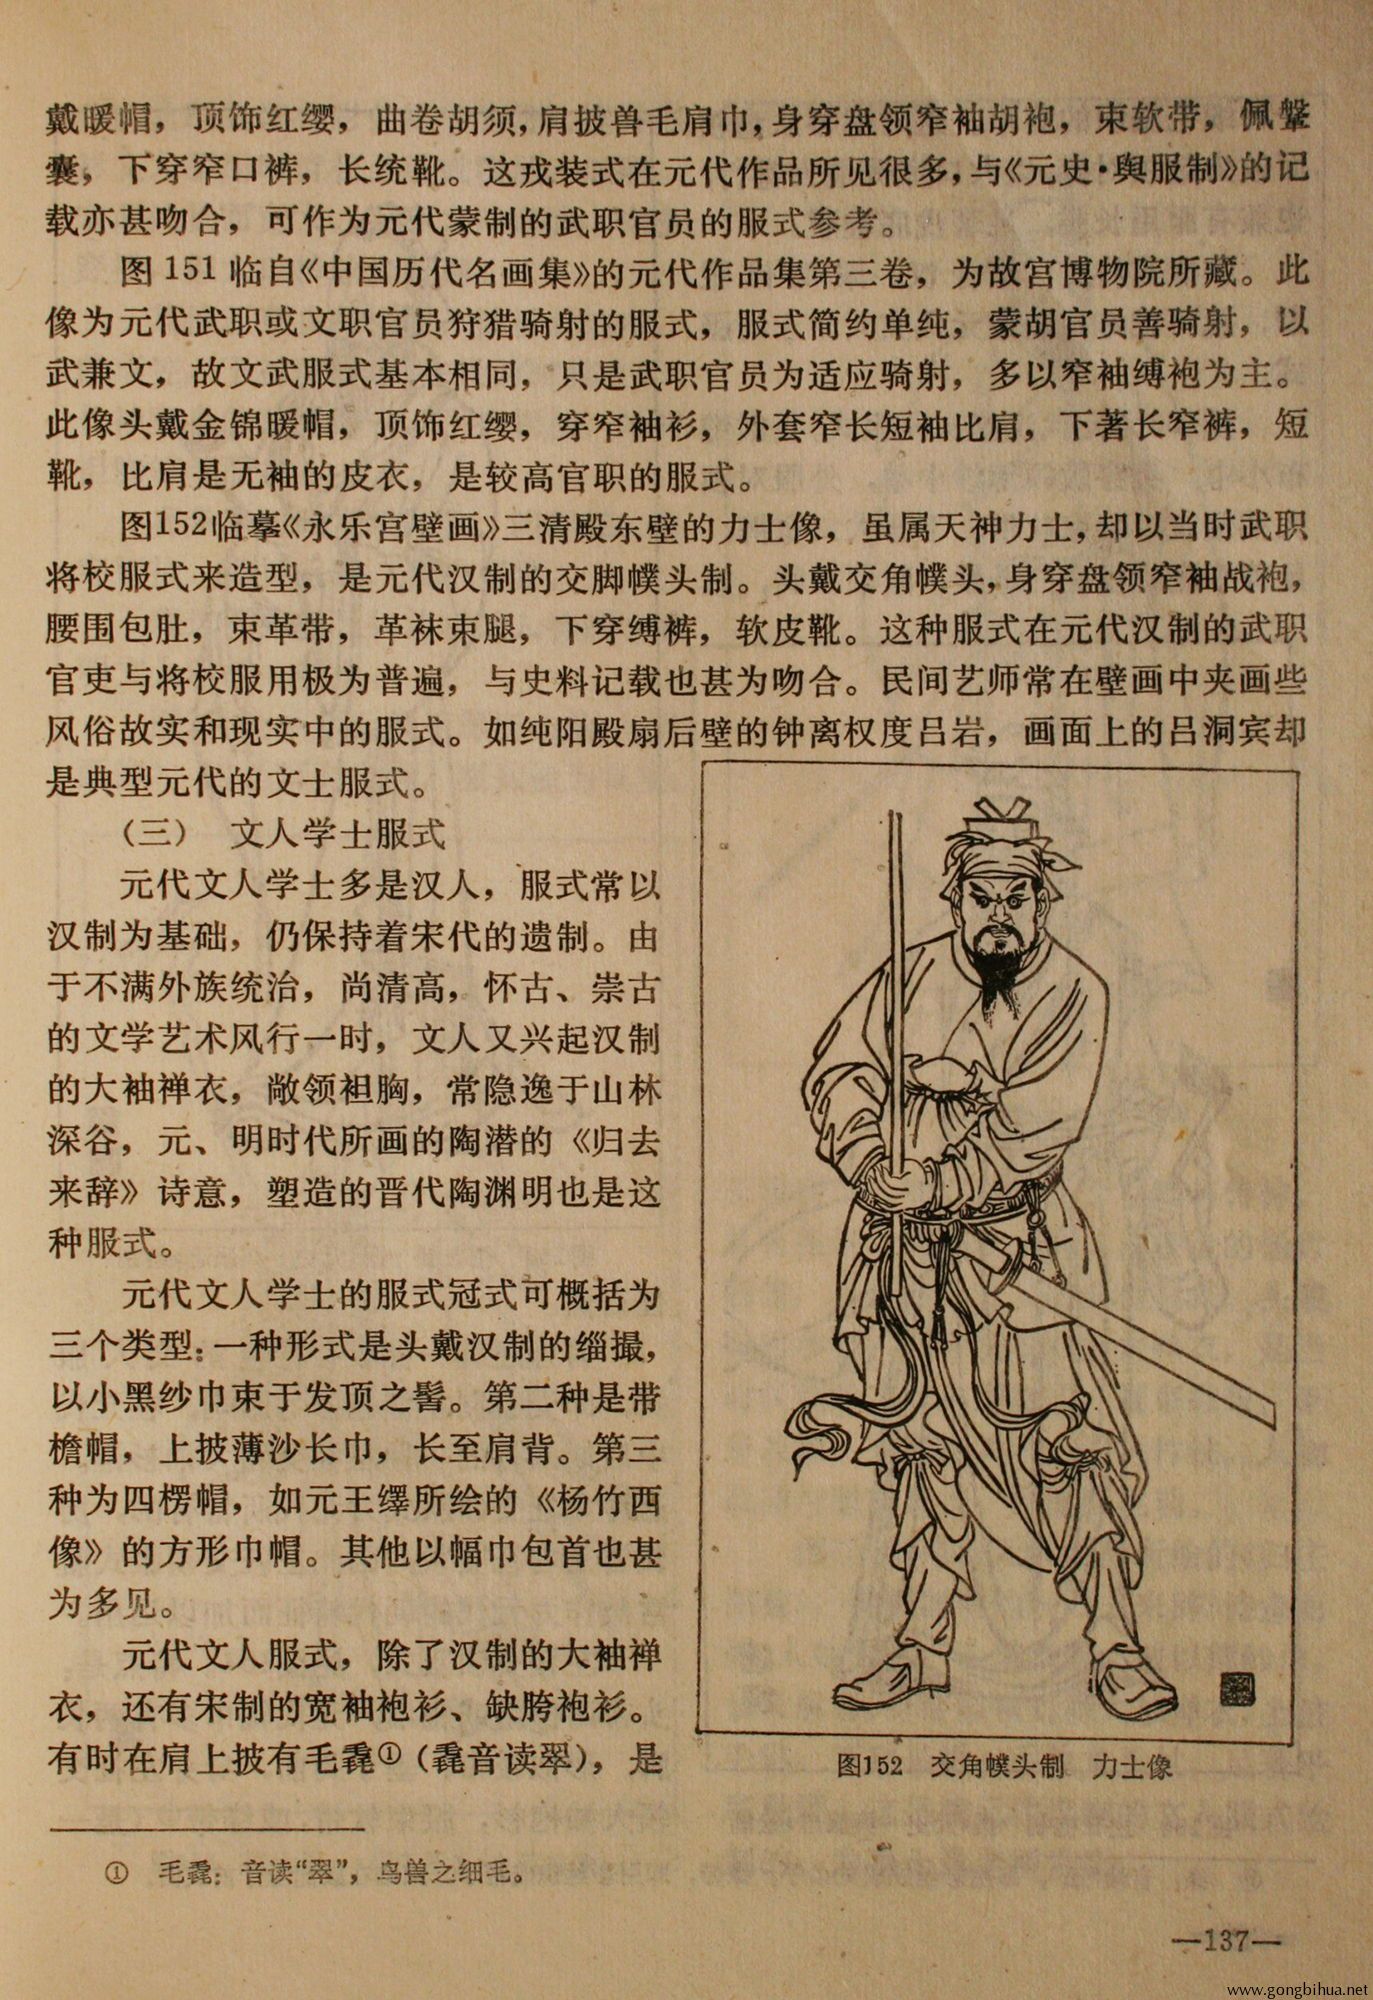 戴暖帽，顶饰红缨，曲卷胡须，肩披兽毛肩巾，身穿盘领窄袖胡袍，束软带，佩鞶
囊，下穿窄口裤，长统靴。这戎装式在元代作品所见很多，与《元史·舆服制》的记
载亦甚吻合，可作为元代蒙制的武职官员的服式参考。
图151临自《中国历代名画集》的元代作品集第三卷，为故宫博物院所藏。此
像为元代武职或文职官员狩猎骑射的服式，服式简约单纯，蒙胡官员善骑射，以
武兼文，故文武服式基本相同，只是武职官员为适应骑射，多以窄袖缚袍为主。
此像头戴金锦暖帽，顶饰红缨，穿窄袖衫，外套窄长短袖比肩，下著长窄裤，短
靴，比肩是无袖的皮衣，是较高官职的服式。
图152临摹《永乐宫壁画》三清殿东壁的力士像，虽属天神力士，却以当时武职
将校服式来造型，是元代汉制的交脚幞头制。头戴交角幞头，身穿盘领窄袖战袍，
腰围包肚，束革带，革袜束腿，下穿缚裤，软皮靴。这种服式在元代汉制的武职
官吏与将校服用极为普遍，与史料记载也甚为吻合。民间艺师常在壁画中夹画些
风俗故实和现实中的服式。如纯阳殿扇后壁的钟离权度吕岩，画面上的吕洞宾却
是典型元代的文士服式。
（三） 文人学士服式
元代文人学士多是汉人，服式常以
汉制为基础，仍保持着宋代的遗制。由
于不满外族统治，尚清高，怀古、崇古
的文学艺术风行一时，文人又兴起汉制
的大袖禅衣，敞领袒胸，常隐逸于山林
深谷，元、明时代所画的陶潜的《归去
来辞》诗意，塑造的晋代陶渊明也是这
种服式。
元代文人学士的服式冠式可概括为
三个类型：一种形式是头戴汉制的缁撮，
以小黑纱巾束于发顶之髻。第二种是带
檐帽，上披薄沙长巾，长至肩背。第三
种为四楞帽，如元王绎所绘的《杨竹西
像》的方形巾帽。其他以幅巾包首也甚
为多见。
元代文人服式，除了汉制的大袖禅
衣，还有宋制的宽袖袍衫、缺胯袍衫。
有时在肩上披有毛毳①（毳音读翠），是
图152 交角幞头制 力士像
① 毛毳：音读“翠”，鸟兽之细毛。
—137—
www.gongbihua.net